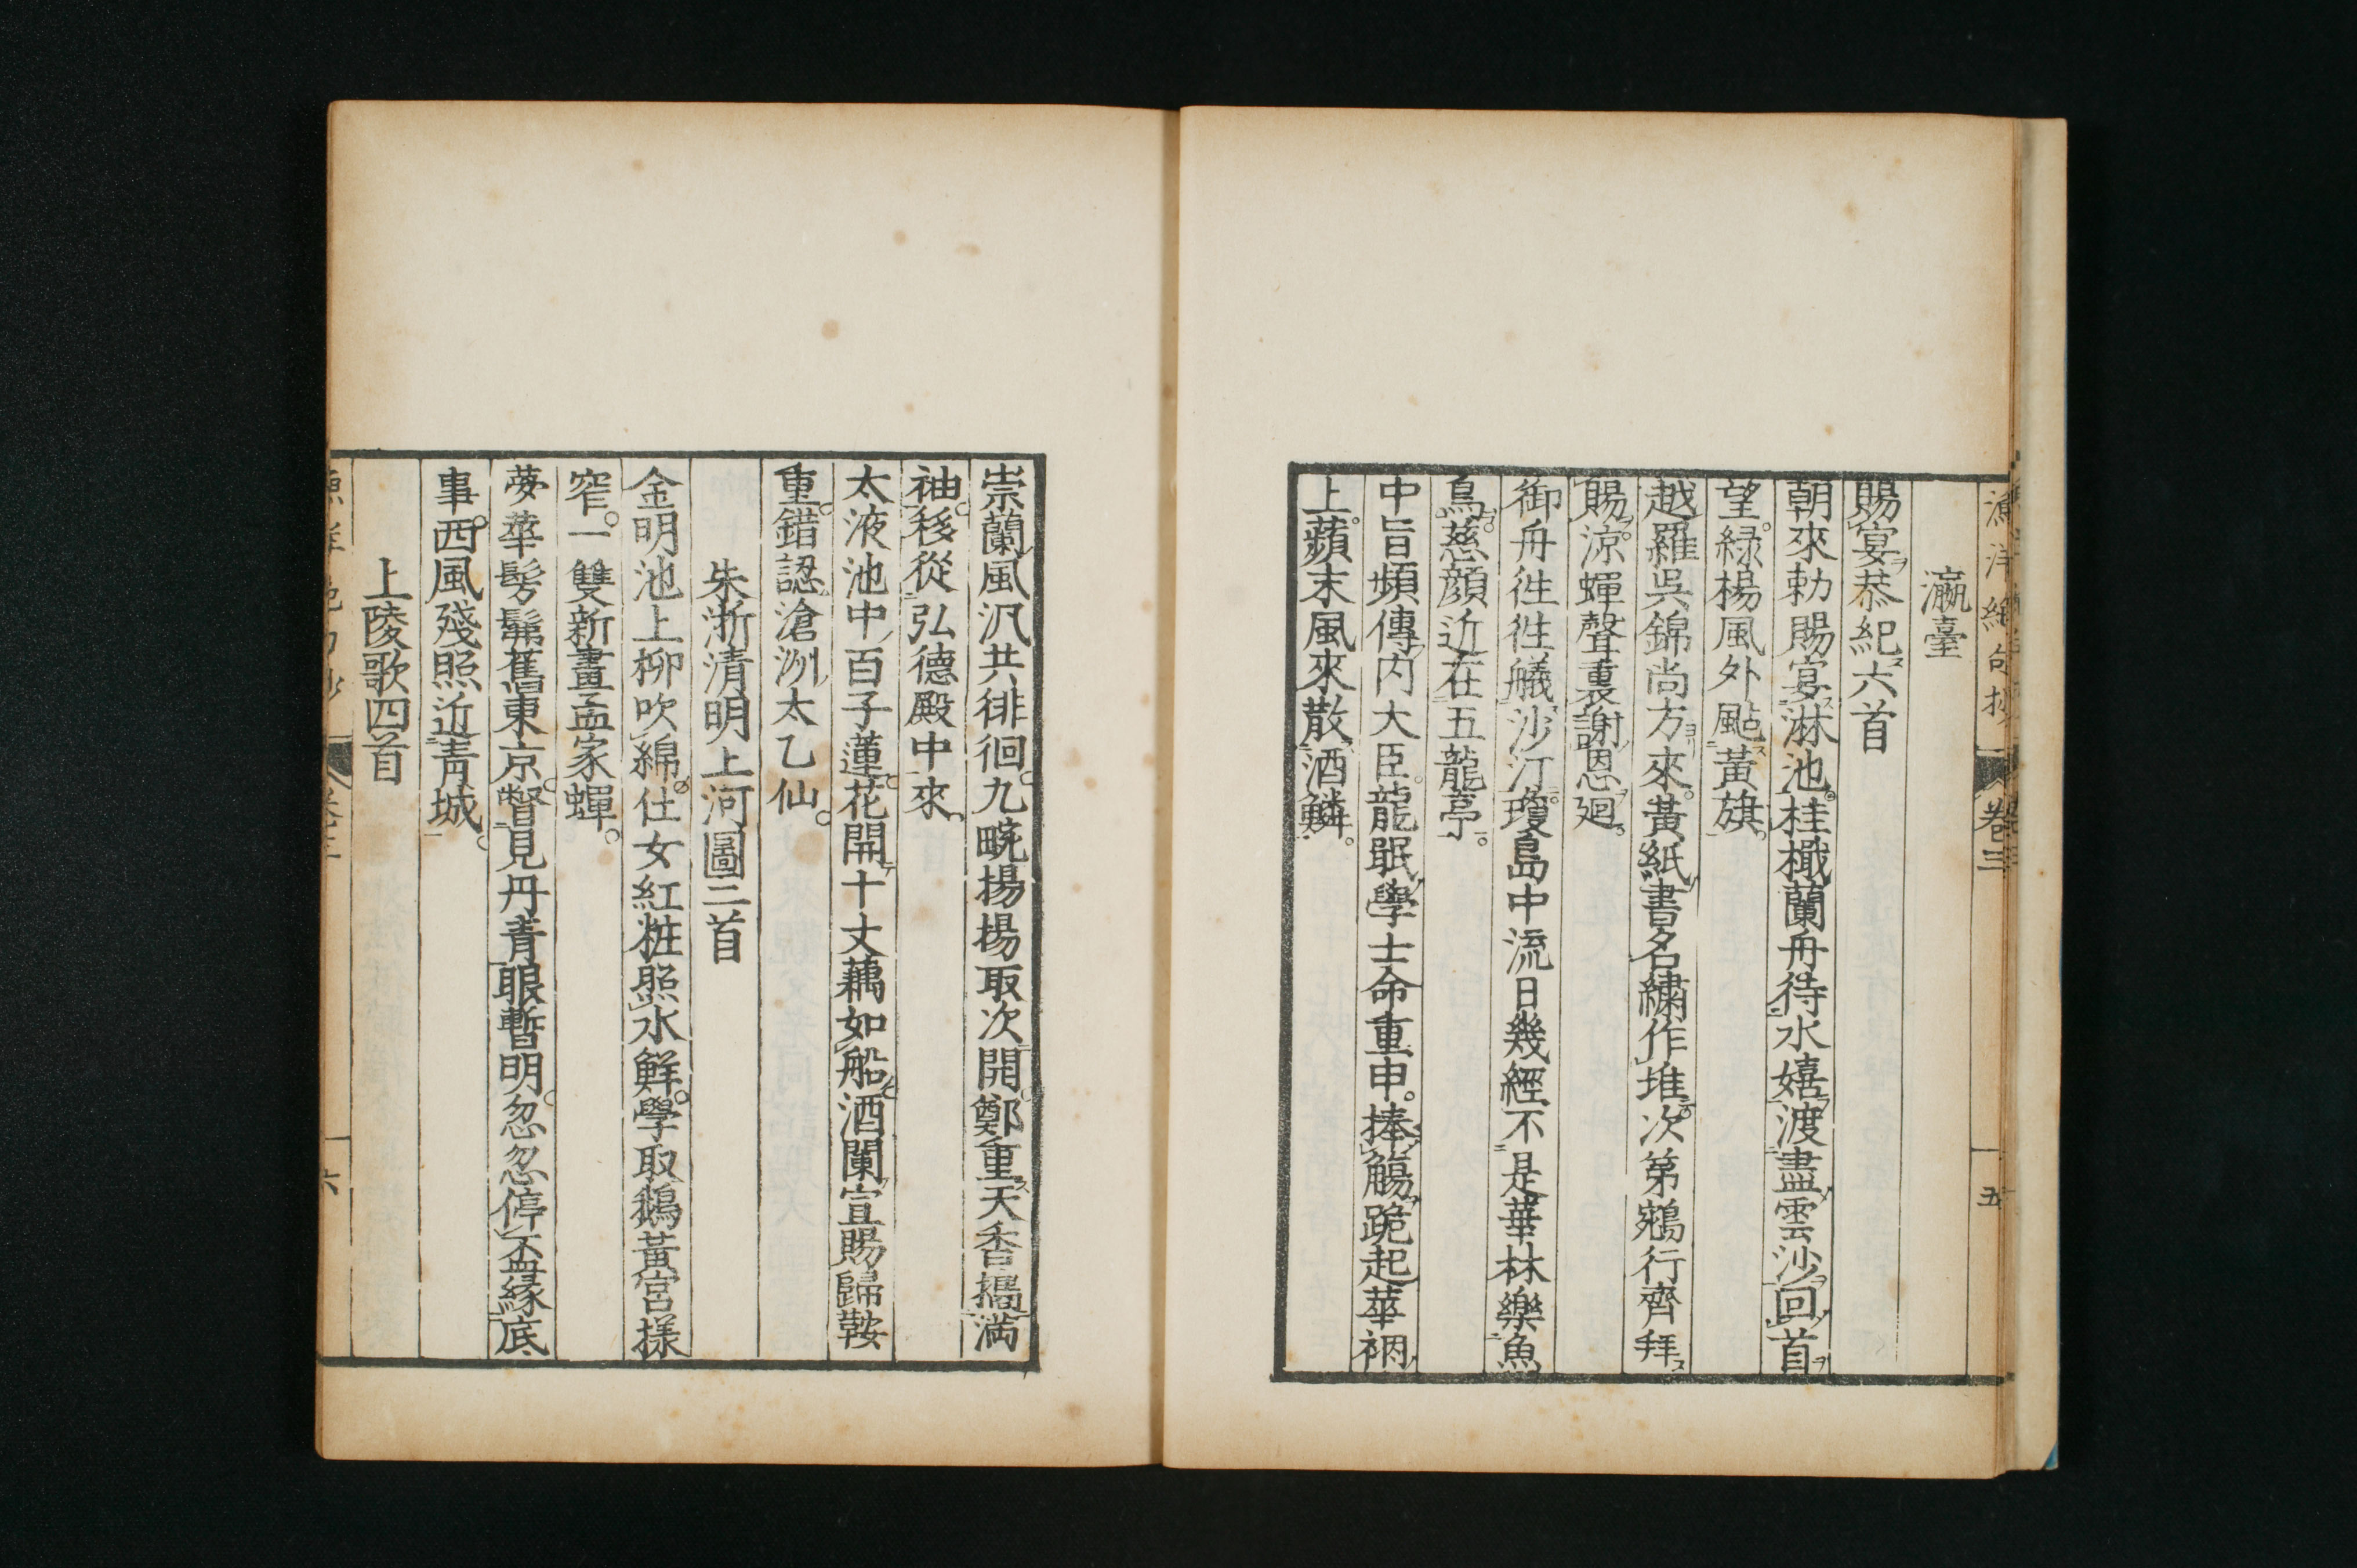 漁洋絶句抄 卷三 五
瀛臺
賜宴恭紀六首
朝來勅賜宴淋池。桂檝蘭舟待水嬉。渡盡雲沙回首
望。緑楊風外颭黃旗。
越羅吳錦尚方來。黃紙書名繡作堆。次第鵷行齊拜
賜。涼蟬聲裏謝恩廻。
御舟徃徃艤沙汀。瓊島中流日幾經。不是華林樂魚
鳥。慈顔近在五龍亭。
中旨頻傳内大臣。龍眠學士命重申。捧觴跪起華裀
上。蘋末風來散酒鱗。
崇蘭風汎共徘徊。九畹揚揚取次開。鄭重天香擕满
袖。移從弘德殿中來。
太液池中百子蓮。花開十丈藕如船。酒闌宣賜歸鞍
重。錯認滄洲太乙仙。
朱浙清明上河圖二首
金明池上柳吹綿。仕女紅粧照水鮮。學取鵝黃宮様
窄。一雙新畫孟家蟬。
夢華髣髴舊東京。瞥見丹青眼暫明。忽忽停盃緣底
事。西風殘照近青城。
上陵歌四首
卷三 六